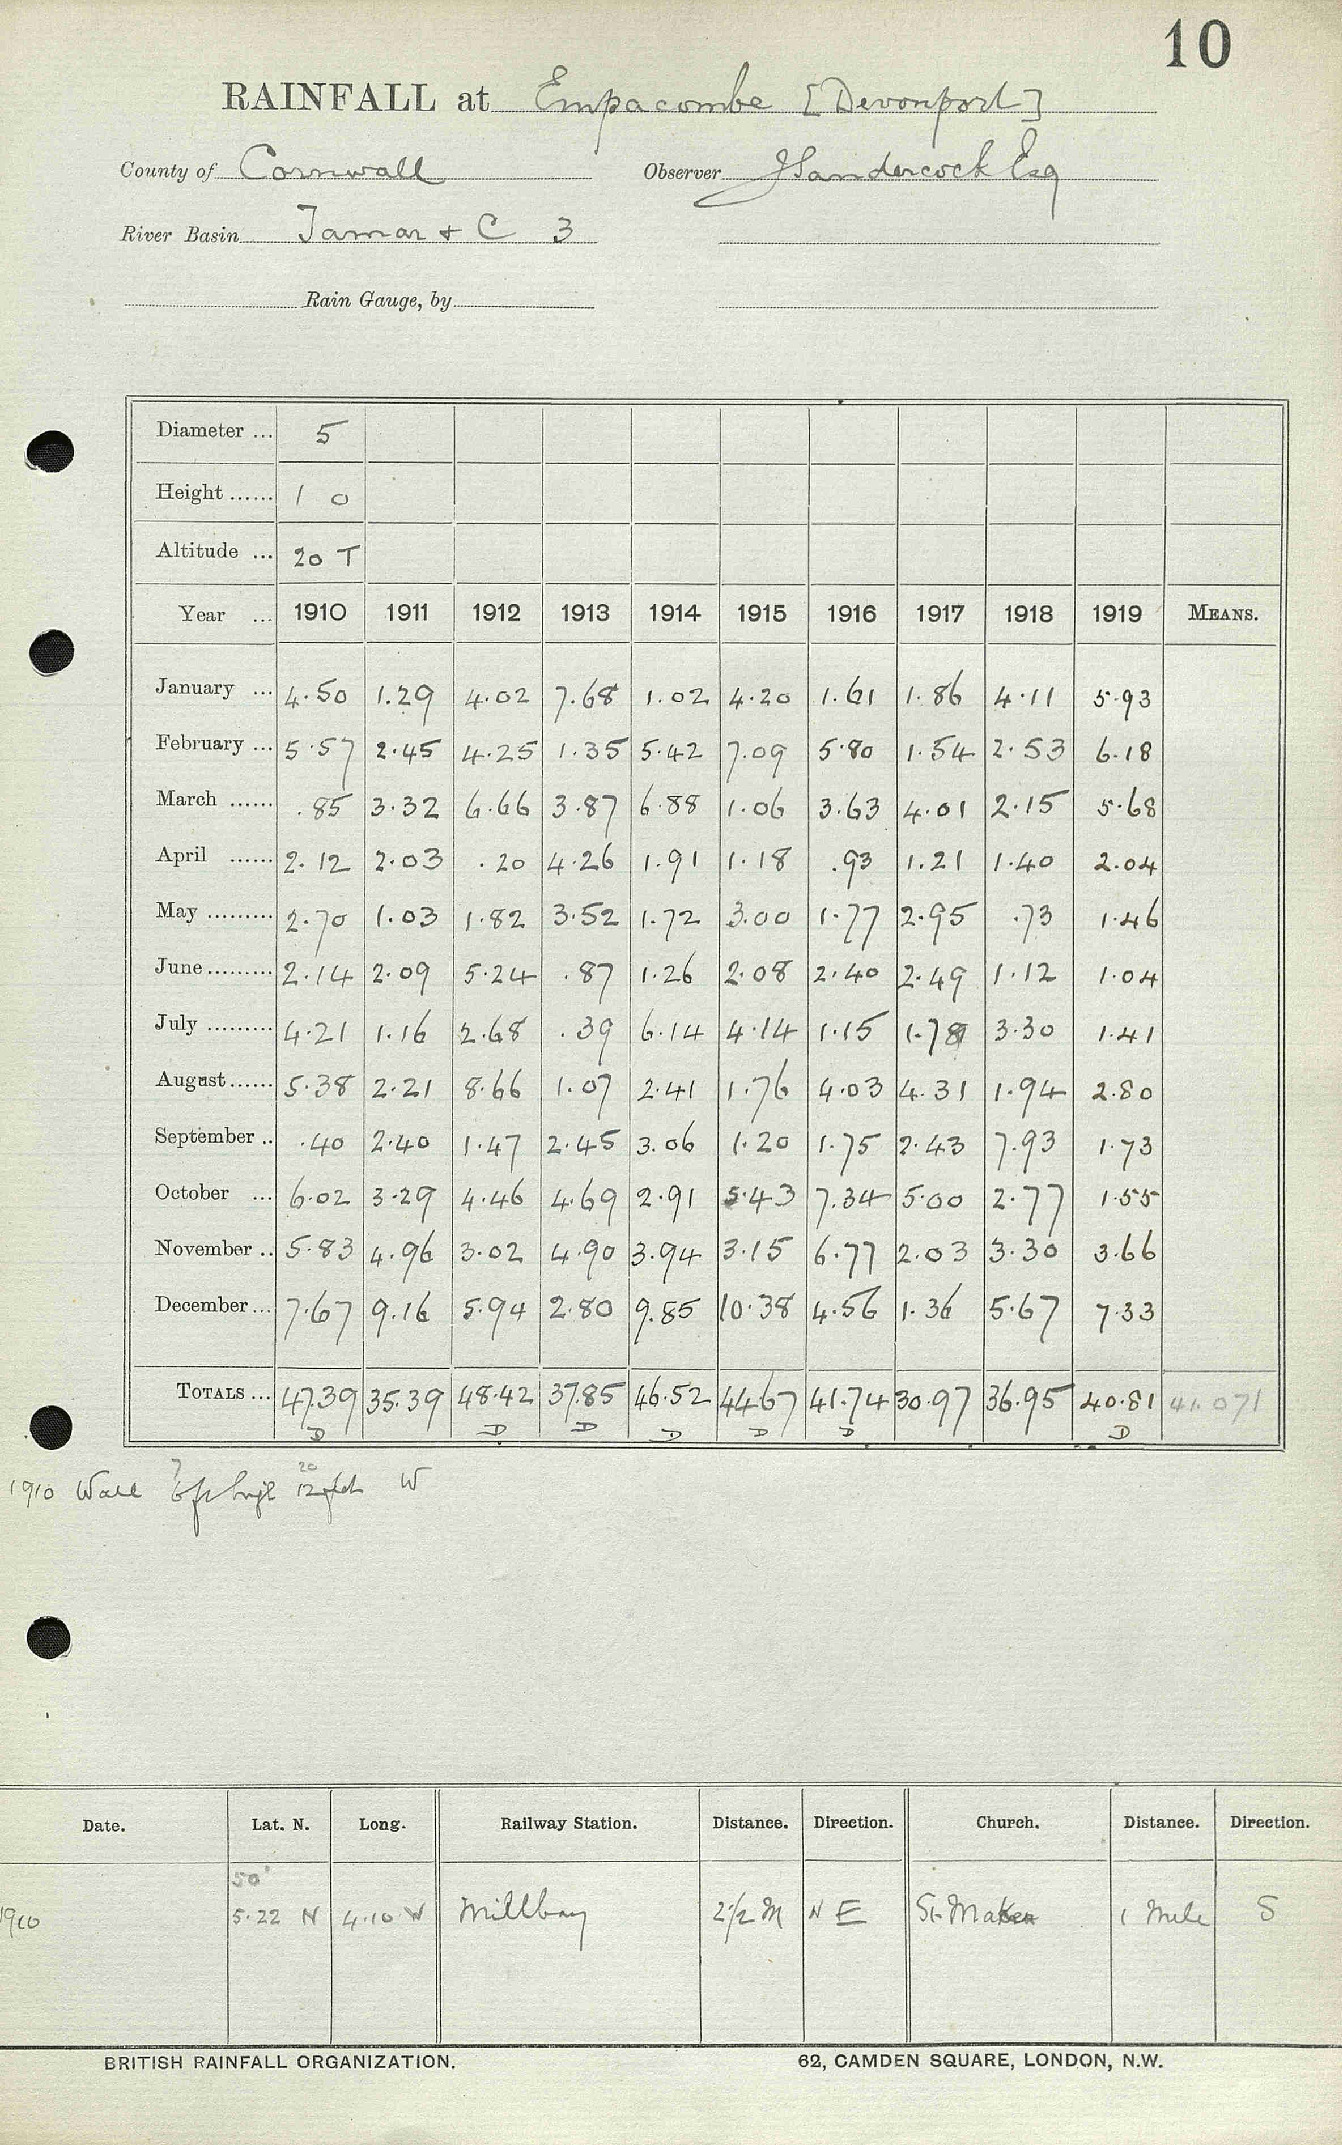 10
RAINFALL at Empacombe [Devonport]
County of Cornwall Observer J Sandercock Esq
River Basin Tamar + C 3
Rain Gauge, by
Diameter ... 5
Height ...... 1 0
Altitude ... 20 T
Year ... 1910 1911 1912 1913 1914 1915 1916 1917 1918 1919 MEANS.
January ... 4.50 1.29 4.02 7.68 1.02 4.20 1.61 1.86 4.11 5.93
February ... 5.57 2.45 4.25 1.35 5.42 7.09 5.80 1.54 2.53 6.18
March ...... .85 3.32 6.66 3.87 6.88 1.06 3.63 4.01 2.15 5.68
April ...... 2.12 2.03 .20 4.26 1.91 1.18 .93 1.21 1.40 2.04
May ......... 2.70 1.03 1.82 3.52 1.72 3.00 1.77 2.95 .73 1.46
June ......... 2.14 2.09 5.24 .87 1.26 2.08 2.40 2.49 1.12 1.04
July ......... 4.21 1.16 2.68 .39 6.14 4.14 1.15 1.78 3.30 1.41
August ...... 5.38 2.21 8.66 1.07 2.41 1.76 4.03 4.31 1.94 2.80
September .. .40 2.40 1.47 2.45 3.06 1.20 1.75 2.43 7.93 1.73
October ... 6.02 3.29 4.46 4.69 2.91 5.43 7.34 5.00 2.77 1.55
November .. 5.83 4.96 3.02 4.90 3.94 3.15 6.77 2.03 3.30 3.66
December ... 7.67 9.16 5.94 2.80 9.85 10.38 4.56 1.36 5.67 7.33
TOTALS ... 47.39 35.39 48.42 37.85 46.52 44.67 41.74 30.97 36.95 40.81 41.071
D D D D D D D
1910 Wall 7 6ft high 20 12 W
Date. Lat. N. Long. Railway Station. Distance. Direction. Church. Distance. Direction.
50°
1910 5.22 N 4.10 W Millbay 2½ M N E St Maker 1 Mile S
BRITISH RAINFALL ORGANIZATION. 62, CAMDEN SQUARE, LONDON, N.W.